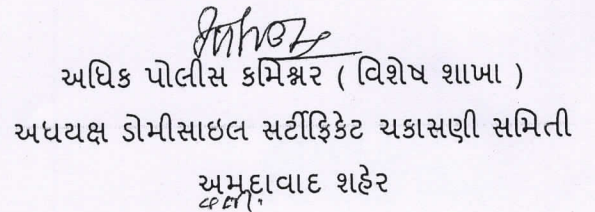 અધિક પોલીસ કમિશ્નર ( વિશેષ શાખા )
અધયક્ષ ડોમીસાઇલ સર્ટીફિકેટ ચકાસણી સમિતી
અમદાવાદ શહેર